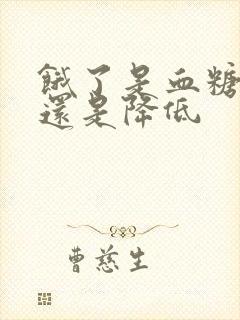 餓了是血糖
還是降低
曹慈生